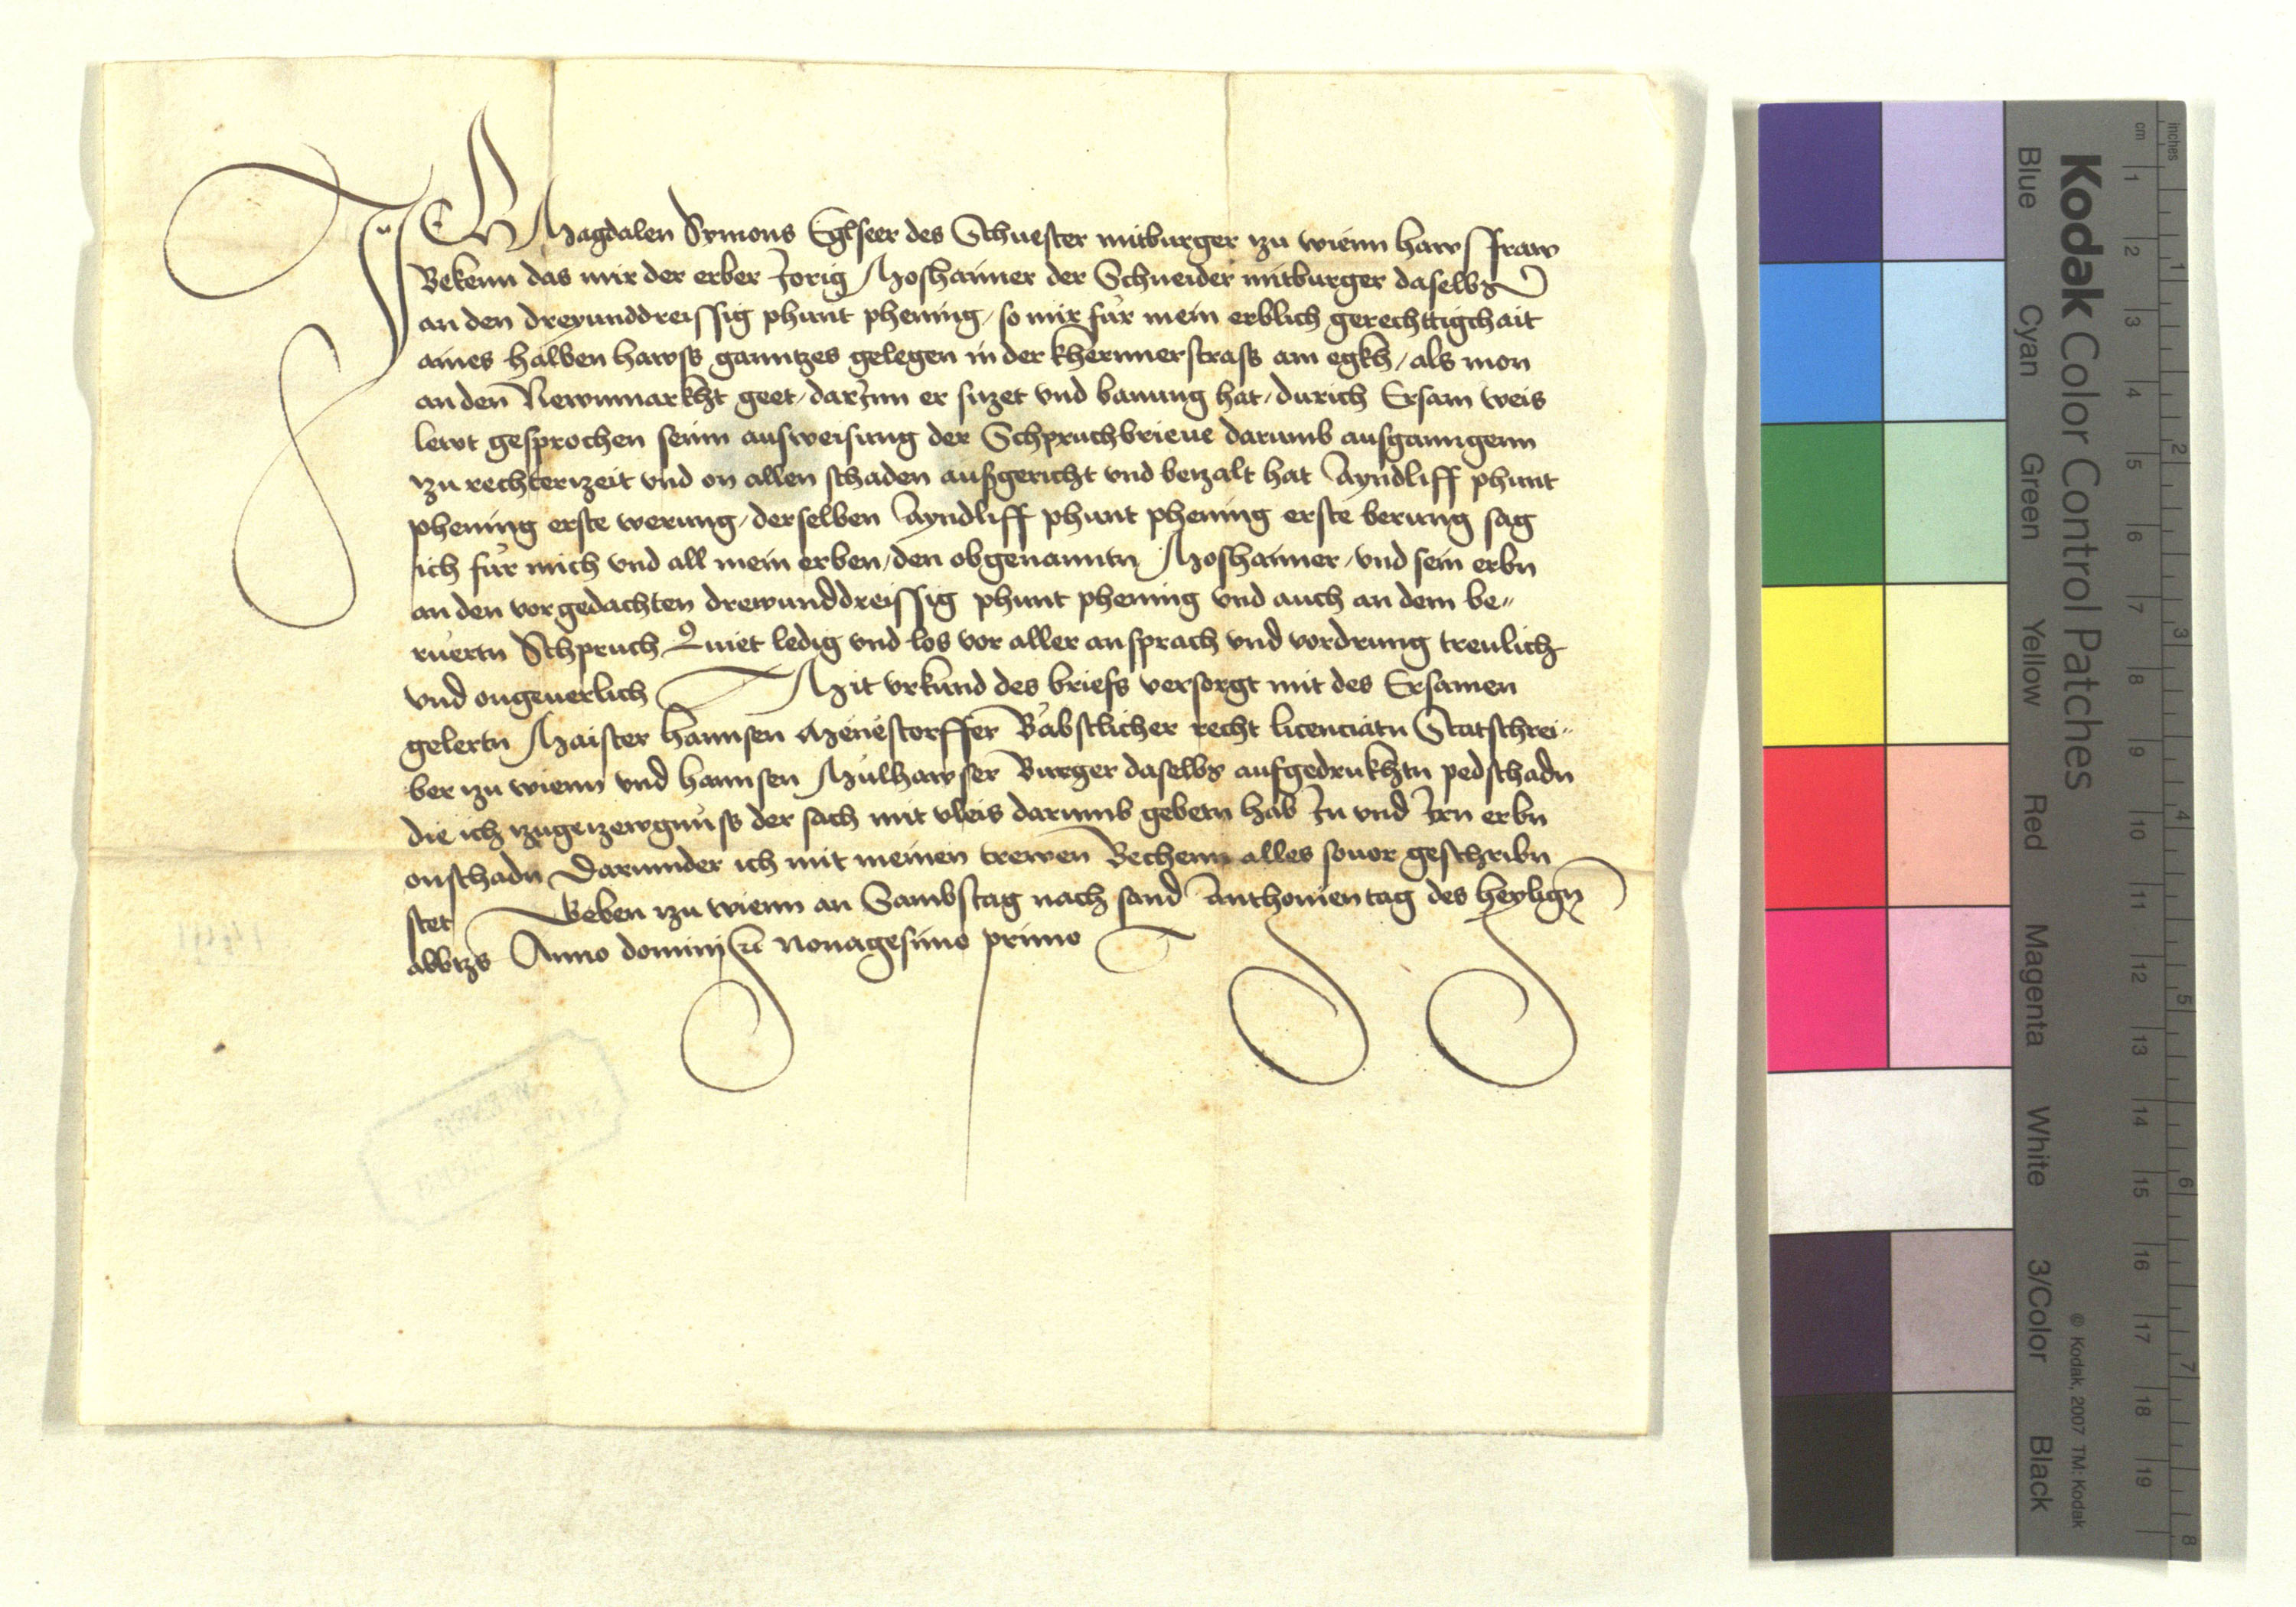 ICH Magdalen Symons Eglseer des Schuester mitburger zu wienn hawsfraw
Bekenn das mir der erber Jorig Moshaimer der Schneider mitburger daselbs
an den dreyunddreissig phunt phening / so mir für mein erblich gerechttigchait
aines halben hawss ganntzes gelegen in der khernnerstrass am egkh / als mon
an den Newnmarkht geet / darInn er siczet vnd bauung hat / durich Ersam weis
lewt gesprochen seinn ausweisung der Schpruchbrieue darumb ausganngenn
zu rechterzeit vnd on allen schaden außgericht vnd betzalt hat Ayndliff phunt
phening erste werung / derselben Ayndliff phunt phening erste berung sag
ich für mich vnd all mein erben / den obgenanntn Moshaimer / vnd sein erbn
an den vorgedachten drewunddreissig phunt phening vnd auch an dem be〃
ruertn Schpruch Quiet ledig vnd los vor aller ansprach vnd vordrung treulich
vnd ongeuerlich Mit vrkund des briefs versorgt mit des Ersamen
gelertn Maister hannsen Bäbstlicher recht licenciatn Statschrei〃
ber zu wienn vnd hannsen Mülhawser Burger daselbs aufgedrukhtn pedschadn
die ich zugezewgnüss der sach mit vleis darumb gebetn hab In vnd Irn erbn
onschadn Darunder ich mit meinen trewen Bechenn alles souor geschribn
stet Geben zu wienn an Sambstag nach sand Anthonien tag des heylign
abbtzs Anno domini etc nonagesimo primo
Kodak Color Control Patches
Blue Cyan Green Yellow Red Magenta White 3/Color Black
© Kodak, 2007 TM: Kodak
inches 1 2 3 4 5 6 7 8
cm 1 2 3 4 5 6 7 8 9 10 11 12 13 14 15 16 17 18 19